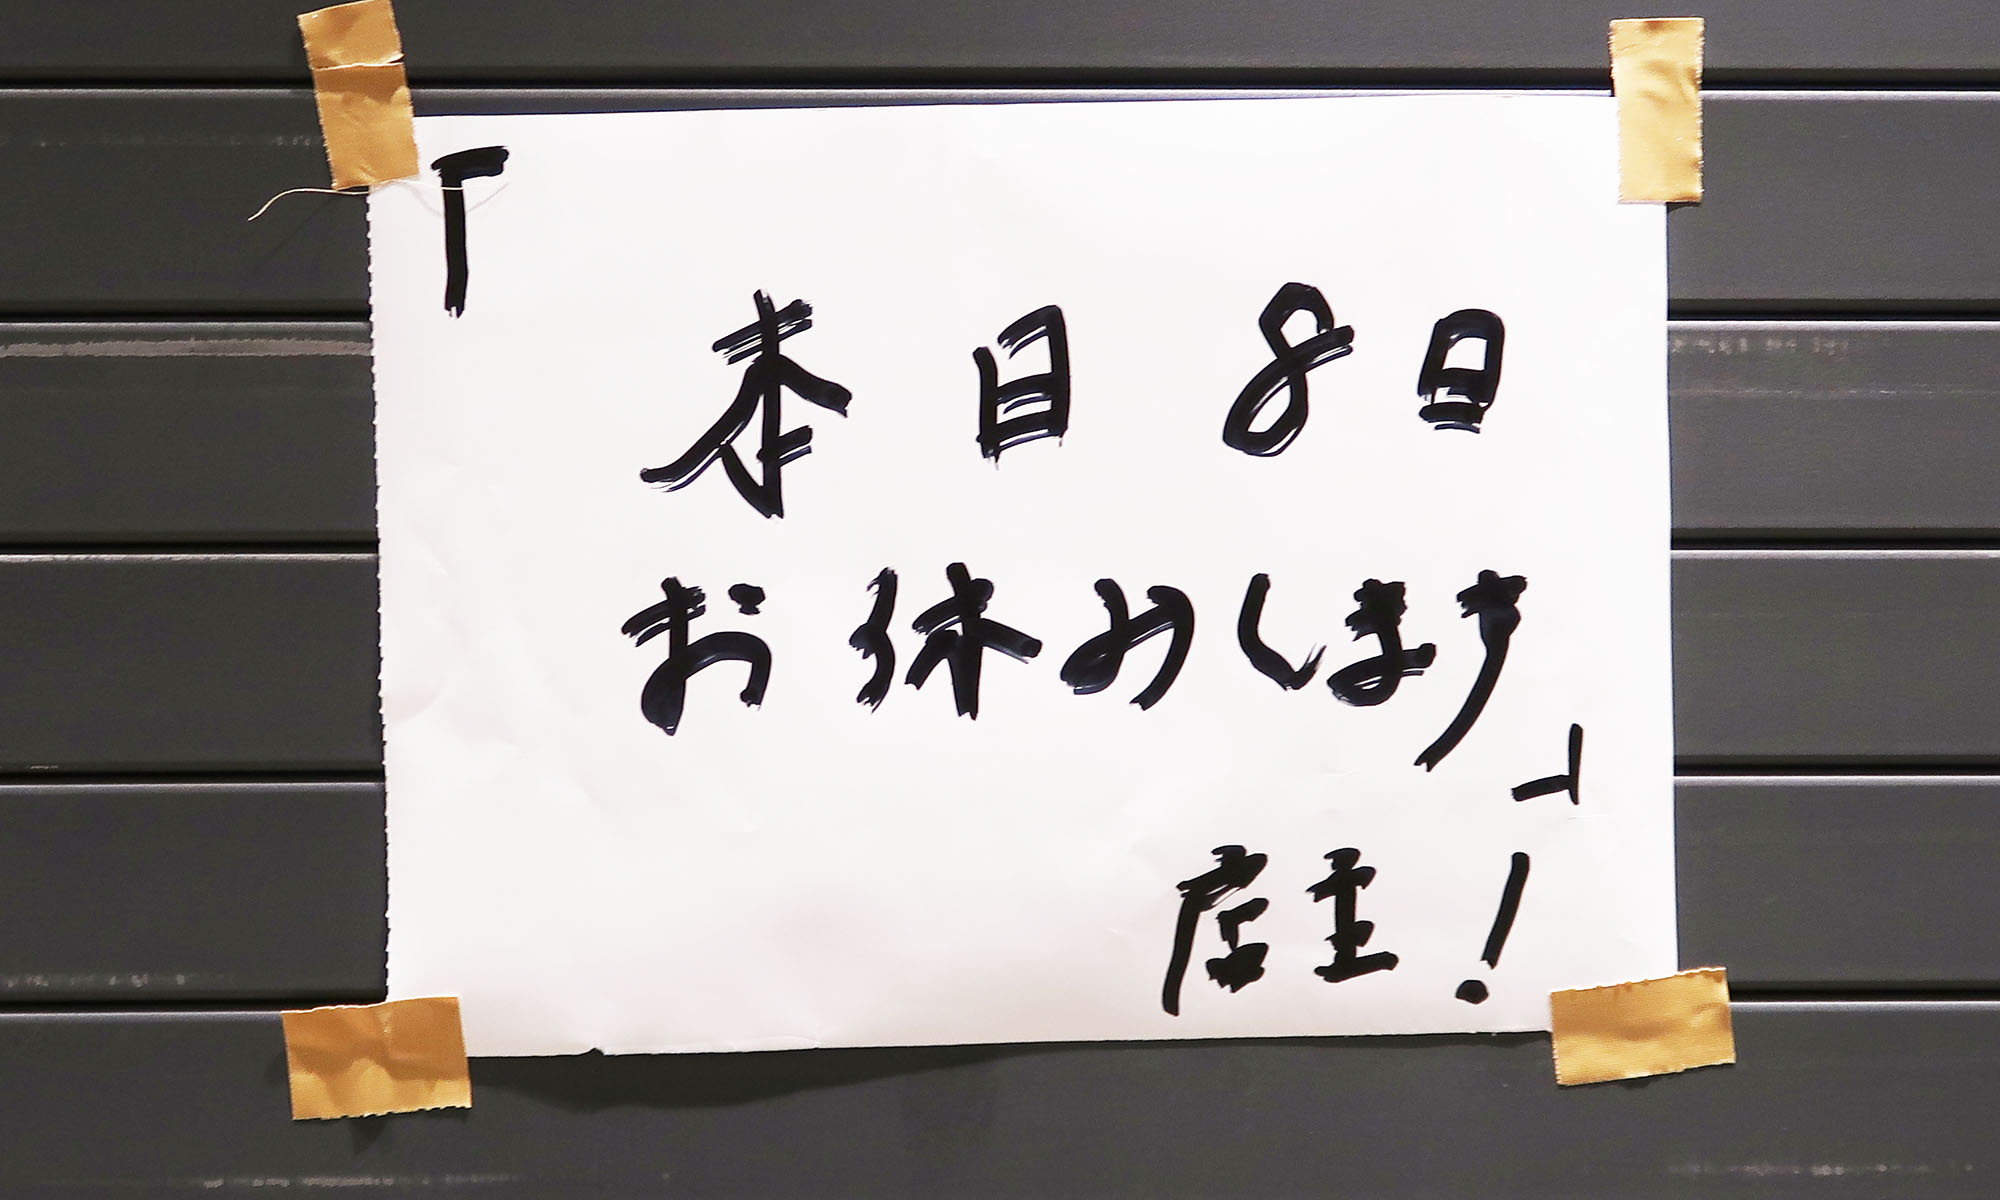 「
本日8日
お休みします」
店主!